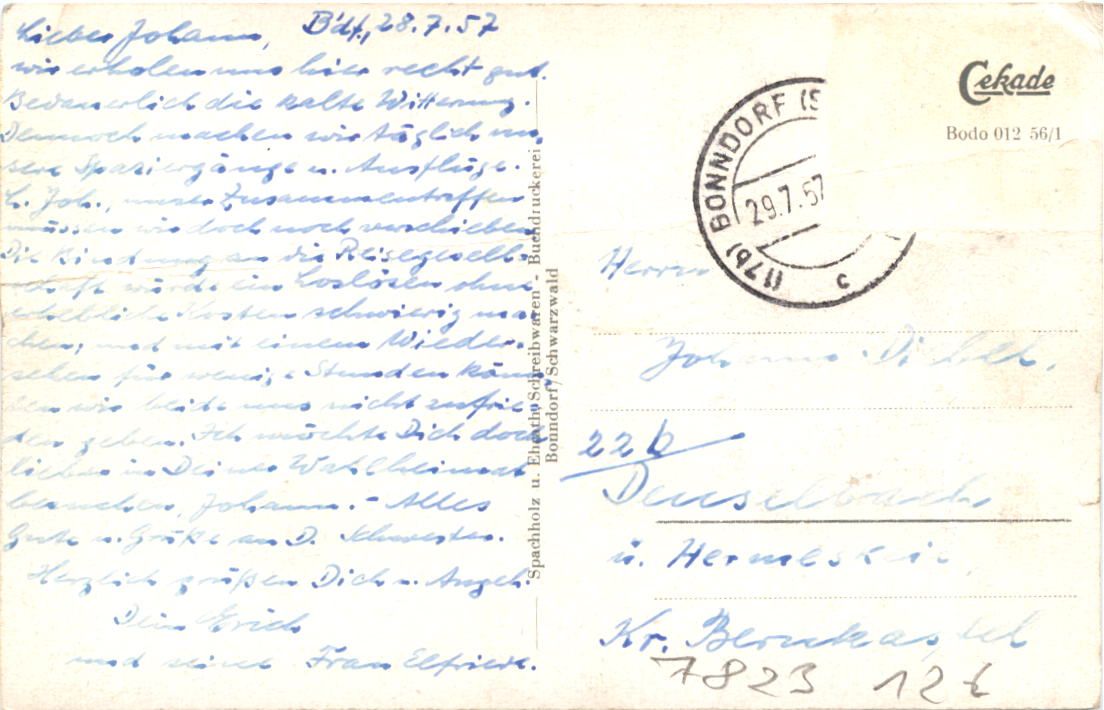 Lieber Johann, B'df., 28.7.57
wir erholen uns hier recht gut.
Bedauerlich die kalte Witterung.
Dennoch machen wir täglich un
sere Spaziergänge u. Ausflüge.
L. Joh., unser Zusammentreffen
müssen wir doch noch verschieben
Die Bindung an die Reisegesell-
schaft würde ein Loslösen ohne
erhebliche Kosten schwierig ma
chen, und mit einem Wieder-
sehen für wenige Stunden kön
nen wir beide uns nicht zufrie
den geben. Ich möchte Dich doch
lieber in Deiner Wahlheimat
besuchen, Johann. - Alles
Gute u. Grüße an D. Schwester.
Herzlich grüßen Dich u. Angeh.
Dein Erich
und seine Frau Elfriede.
Spachholz u. Ehrath, Schreibwaren - Buchdruckerei
Bonndorf/Schwarzwald
Cekade
Bodo 012 56/1
(17b) BONNDORF (S
29.7.57
c
Herrn
Johann
22b
Deuselbach
ü. Hermeskeil
Kr. Bernkastel
7823 12€